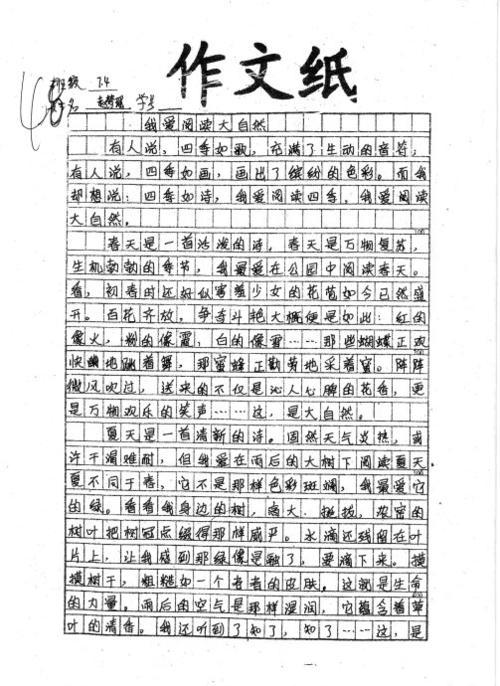 作文纸
班级 7.4
姓名 学号
48
我爱阅读大自然
有人说，四季如歌，充满了生动的音符，
有人说，四季如画，画出了缤纷的色彩。而我
却想说：四季如诗，我爱阅读四季，我爱阅读
大自然。
春天是一首活泼的诗。春天是万物复苏，
生机勃勃的季节，我最爱在公园中阅读春天。
看，初春时还好似害羞少女的花苞如今已然盛
开。百花齐放，争奇斗艳大概便是如此：红的
像火，粉的像霞，白的像雪……那些蝴蝶正欢
快地跳着舞，那蜜蜂正勤劳地采着蜜。阵阵
微风吹过，送来的不仅是沁人心脾的花香，更
是万物欢乐的笑声……这，是大自然。
夏天是一首清新的诗。固然天气炎热，或
许干渴难耐，但我爱在雨后的大树下阅读夏天
夏不同于春，它不是那样色彩斑斓，我最爱它
的绿。看看我身边的树，高大、挺拔，浓密的
树叶把树冠点缀得那样威严。水滴还残留在叶
片上，让我感到那绿像是融了，要滴下来。摸
摸树干，粗糙如一个老者的皮肤。这就是生命
的力量。雨后的空气是那样湿润，它蕴含着草
叶的清香。我还听到了知了，知了……这，是